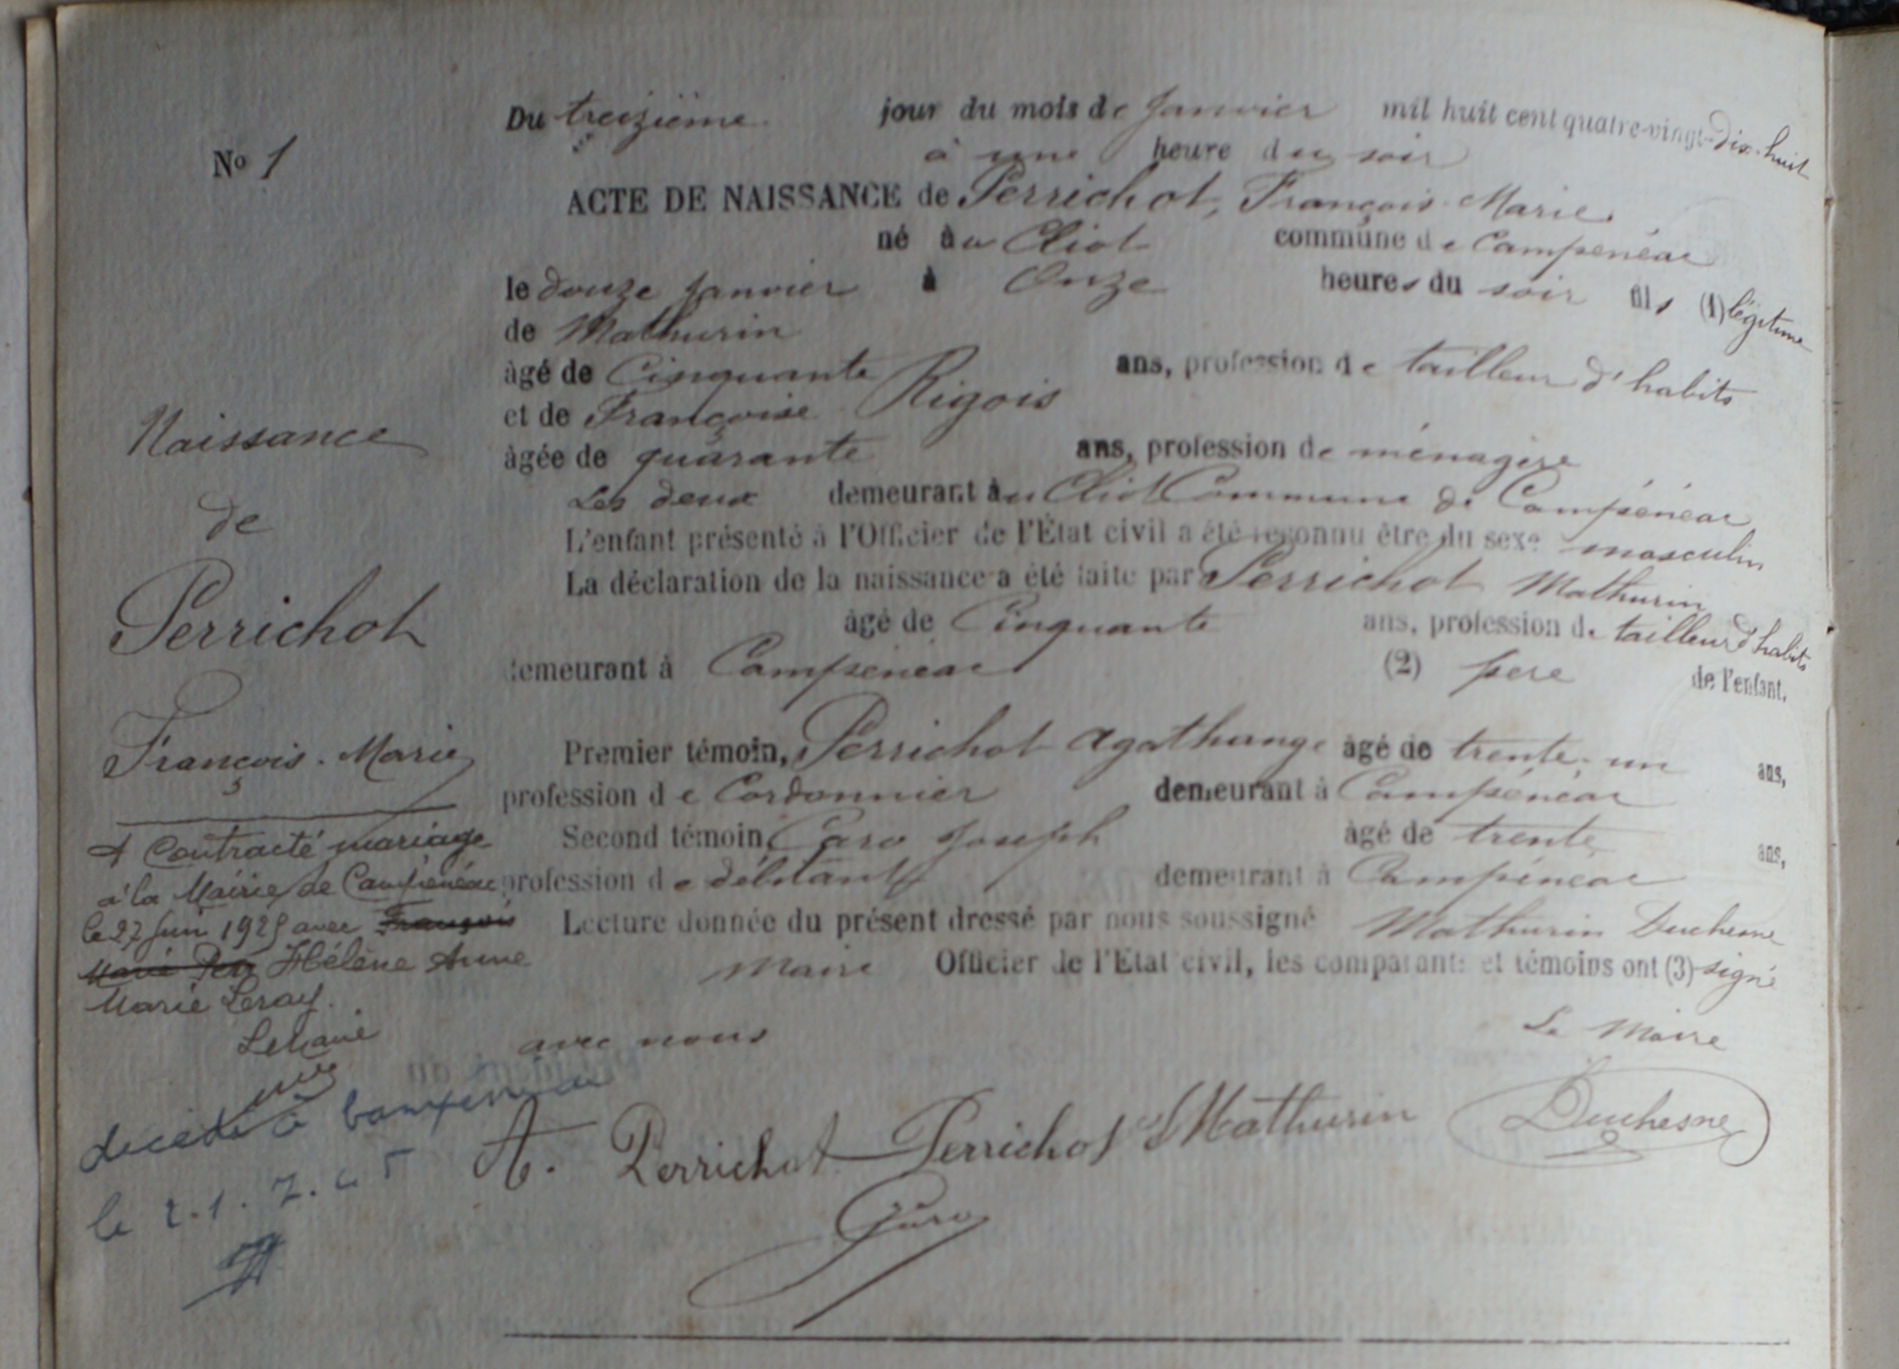 Du treizième jour du mois de Janvier mil huit cent quatre-vingt-dix-huit
à une heure du soir
No 1
ACTE DE NAISSANCE de Perrichot, François Marie
né au Cliot commune de Campénéac
le douze Janvier à Onze heures du soir fils (1) légitime
de Mathurin
âgé de Cinquante ans, profession de tailleur d'habits
et de Françoise Rigois
âgée de quarante ans, profession de ménagère
Les deux demeurant au Cliot Commune de Campénéac
L'enfant présenté à l'Officier de l'État civil a été reconnu être du sexe masculin
La déclaration de la naissance a été faite par Perrichot Mathurin
âgé de Cinquante ans, profession de tailleur d'habits
demeurant à Campénéac (2) père de l'enfant.
Premier témoin, Perrichot Agathange âgé de trente-un ans,
profession de Cordonnier demeurant à Campénéac
Second témoin, Caro Joseph âgé de trente ans,
profession de débitant demeurant à Campénéac
Lecture donnée du présent dressé par nous soussigné Mathurin Duchesne
Maire Officier de l'Etat civil, les comparants et témoins ont (3) signé
avec nous
Le Maire
A. Perrichot Perrichot Mathurin Duchesne
Caro
Naissance
de
Perrichot
François-Marie
A Contracté mariage
à la Mairie de Campénéac
le 27 Juin 1925 avec François
Marie Hélène Anne
Marie Leray.
Le Maire
décédé à Campénéac
le